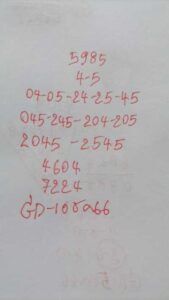 5985
4-5
04-05-24-25-45
045-245-204-205
2045-2545
4604
7224